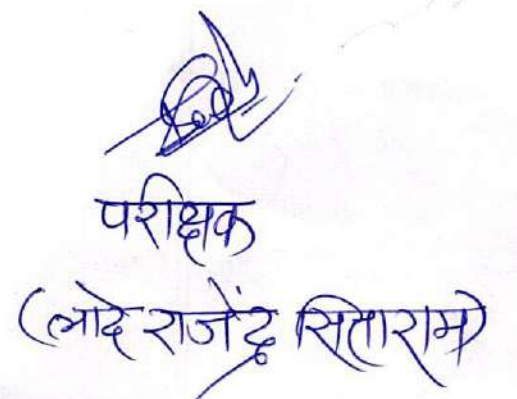 परीक्षक
(लादे राजेंद्र सिताराम)